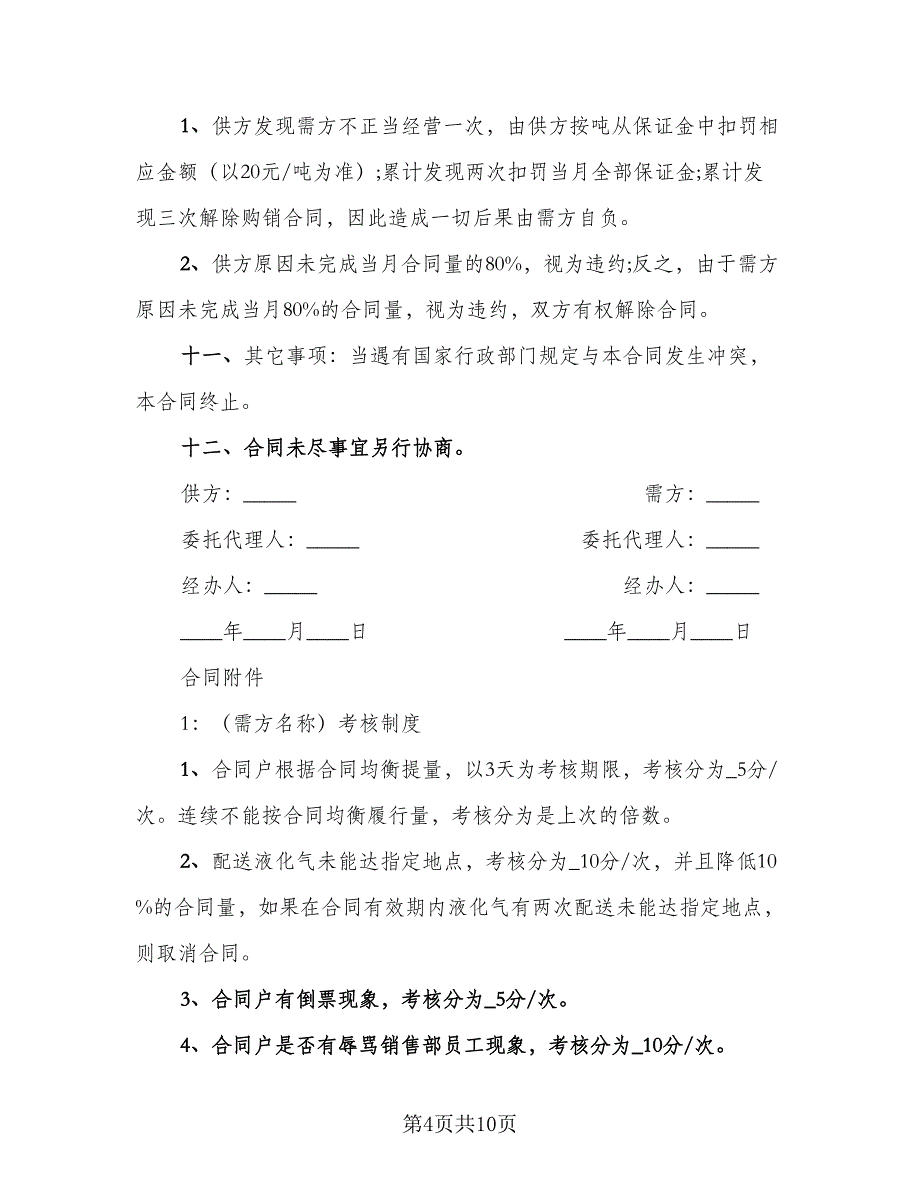 1、供方发现需方不正当经营一次，由供方按吨从保证金中扣罚相
应金额（以20元/吨为准）;累计发现两次扣罚当月全部保证金;累计发
现三次解除购销合同，因此造成一切后果由需方自负。
2、供方原因未完成当月合同量的80%，视为违约;反之，由于需方
原因未完成当月80%的合同量，视为违约，双方有权解除合同。
十一、其它事项：当遇有国家行政部门规定与本合同发生冲突，
本合同终止。
十二、合同未尽事宜另行协商。
供方：_____ 需方：_____
委托代理人：_____ 委托代理人：_____
经办人：_____ 经办人：_____
____年____月____日 ____年____月____日
合同附件
1：（需方名称）考核制度
1、合同户根据合同均衡提量，以3天为考核期限，考核分为_5分/
次。连续不能按合同均衡履行量，考核分为是上次的倍数。
2、配送液化气未能达指定地点，考核分为_10分/次，并且降低10
%的合同量，如果在合同有效期内液化气有两次配送未能达指定地点，
则取消合同。
3、合同户有倒票现象，考核分为_5分/次。
4、合同户是否有辱骂销售部员工现象，考核分为_10分/次。
第4页共10页